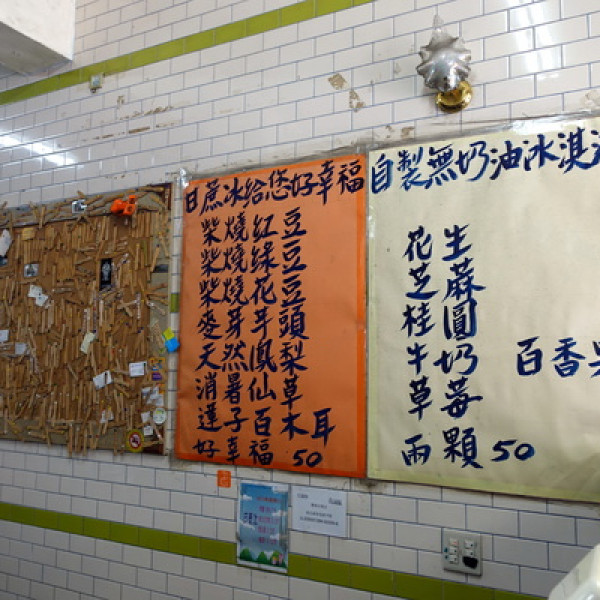 日蔗冰給您好幸福
柴燒紅豆
柴燒綠豆
柴燒花豆
麥芽芋頭
天然鳳梨
消暑仙草
蓮子百木耳
好幸福 50
自製無奶油冰淇
花生
芝蔴
桂圓
牛奶
草莓
百香
兩顆50